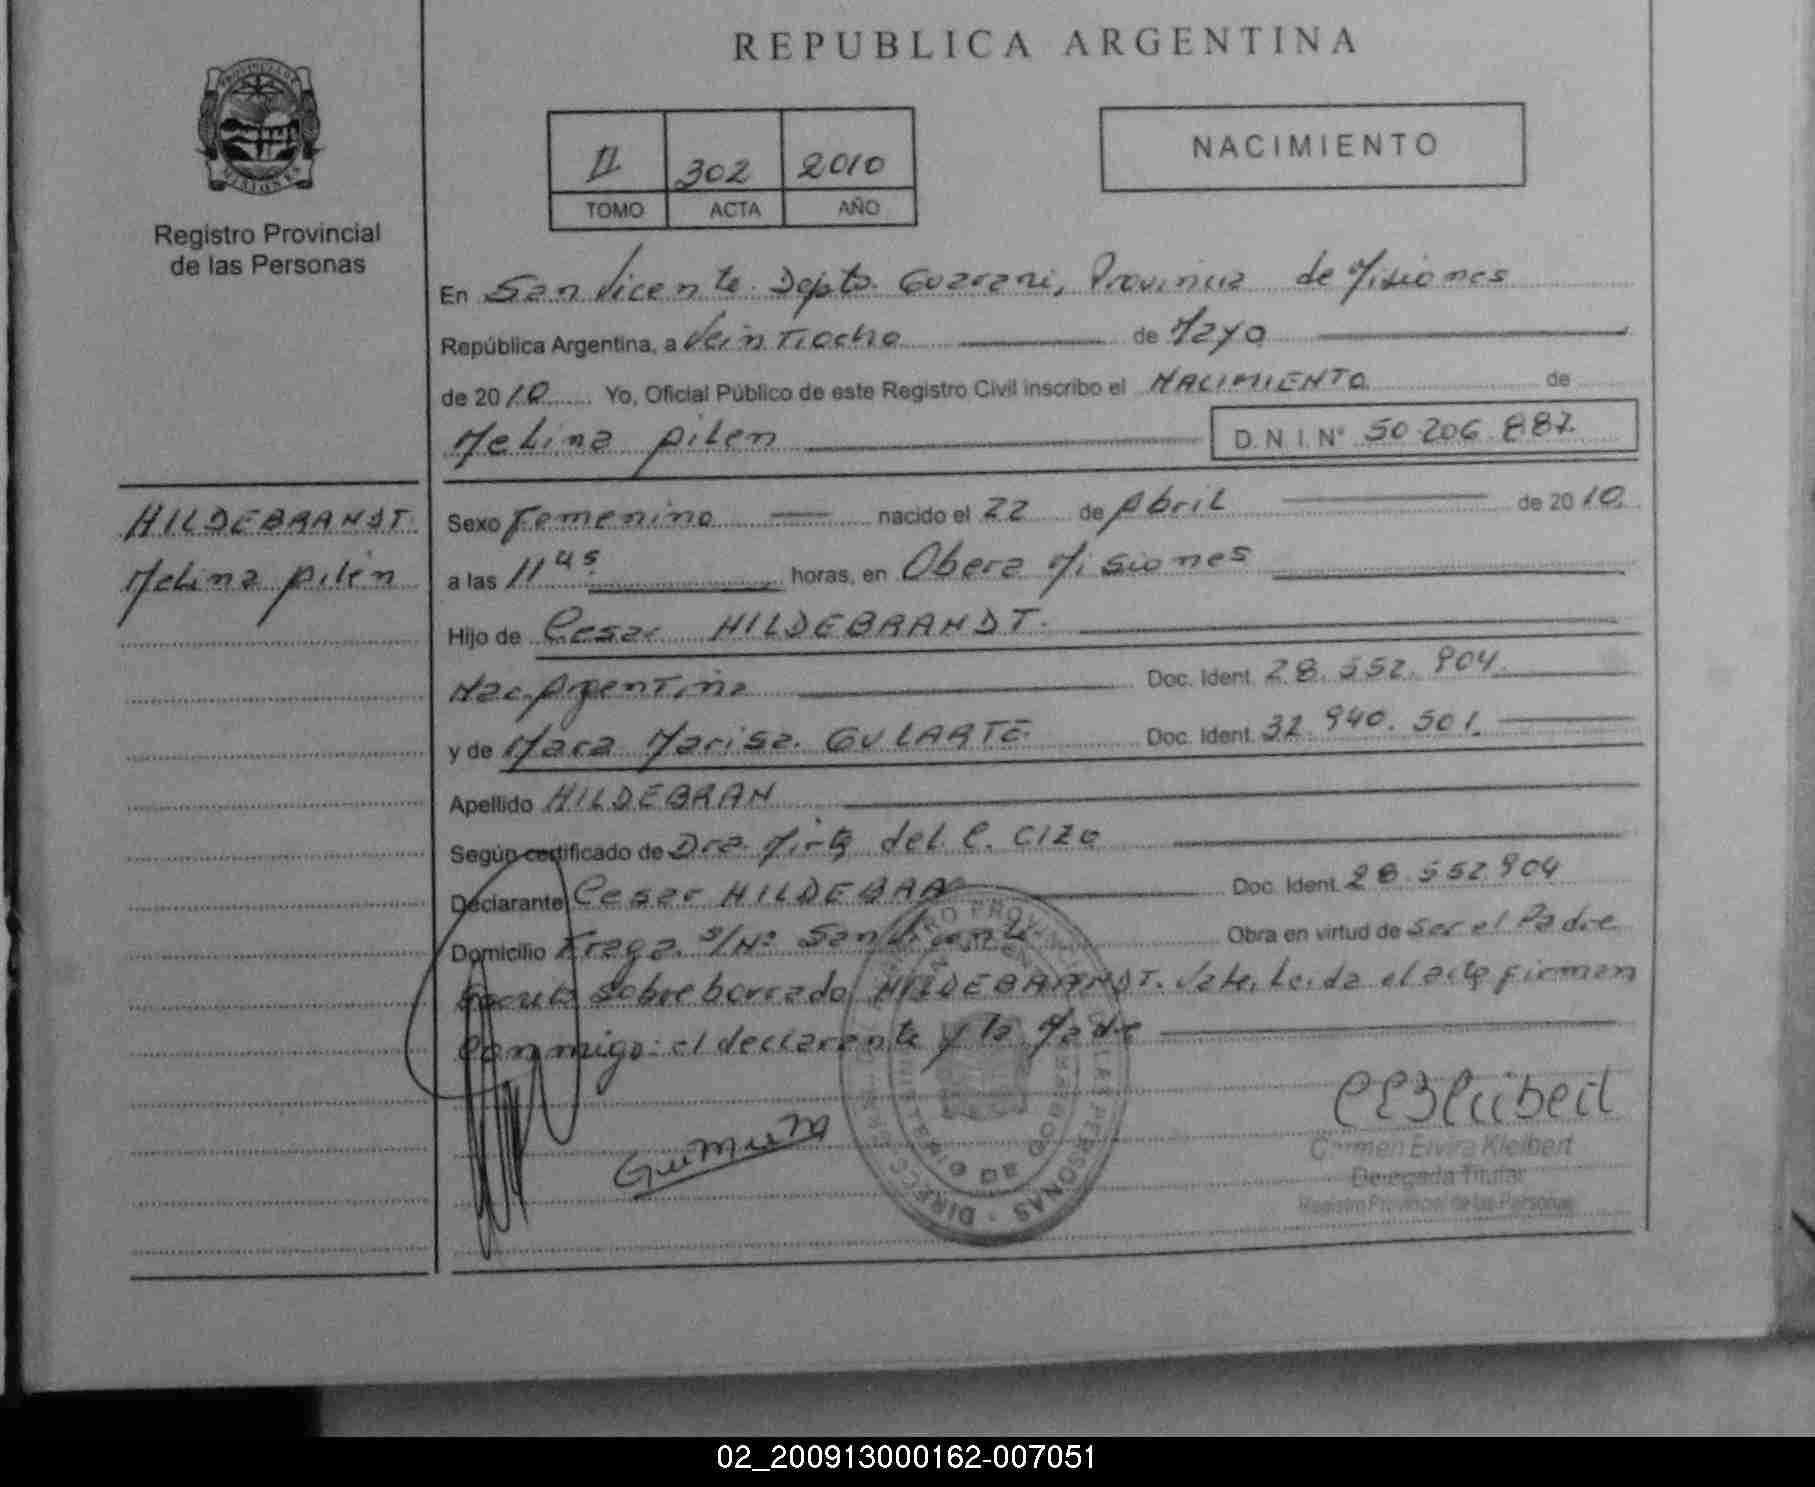 REPUBLICA ARGENTINA
PROVINCIA DE
MISIONES
Registro Provincial
de las Personas
II 302 2010
TOMO ACTA AÑO
NACIMIENTO
En San Vicente. Depto. Guarani, Provincia de Misiones
República Argentina, a Veintiocho de Mayo
de 2010 Yo, Oficial Público de este Registro Civil inscribo el NACIMIENTO de
Melina Ailen D.N.I.Nº 50.206.887.
HILDEBRANDT.
Melina Ailen
Sexo Femenino nacido el 22 de Abril de 2010
a las 11 45 horas, en Obera Misiones
Hijo de Cesar HILDEBRANDT.
Nac. Argentina Doc. Ident. 28.552.904.
y de Mara Marisa. GULARTE Doc. Ident. 32.940.501.
Apellido HILDEBRAN
Según certificado de Dra. Mirta del C. CIZO
Declarante Cesar HILDEBRA Doc. Ident. 28.552.904
Domicilio Fraga. S/Nº San Vicente Obra en virtud de Ser el Padre
sobre borrado HILDEBRANDT. Vale. Leida el acta firman
Conmigo: el declarante y la Madre
Carmen Elvira Kleibert
Delegada Titular
Registro Provincial de las Personas
02_200913000162-007051